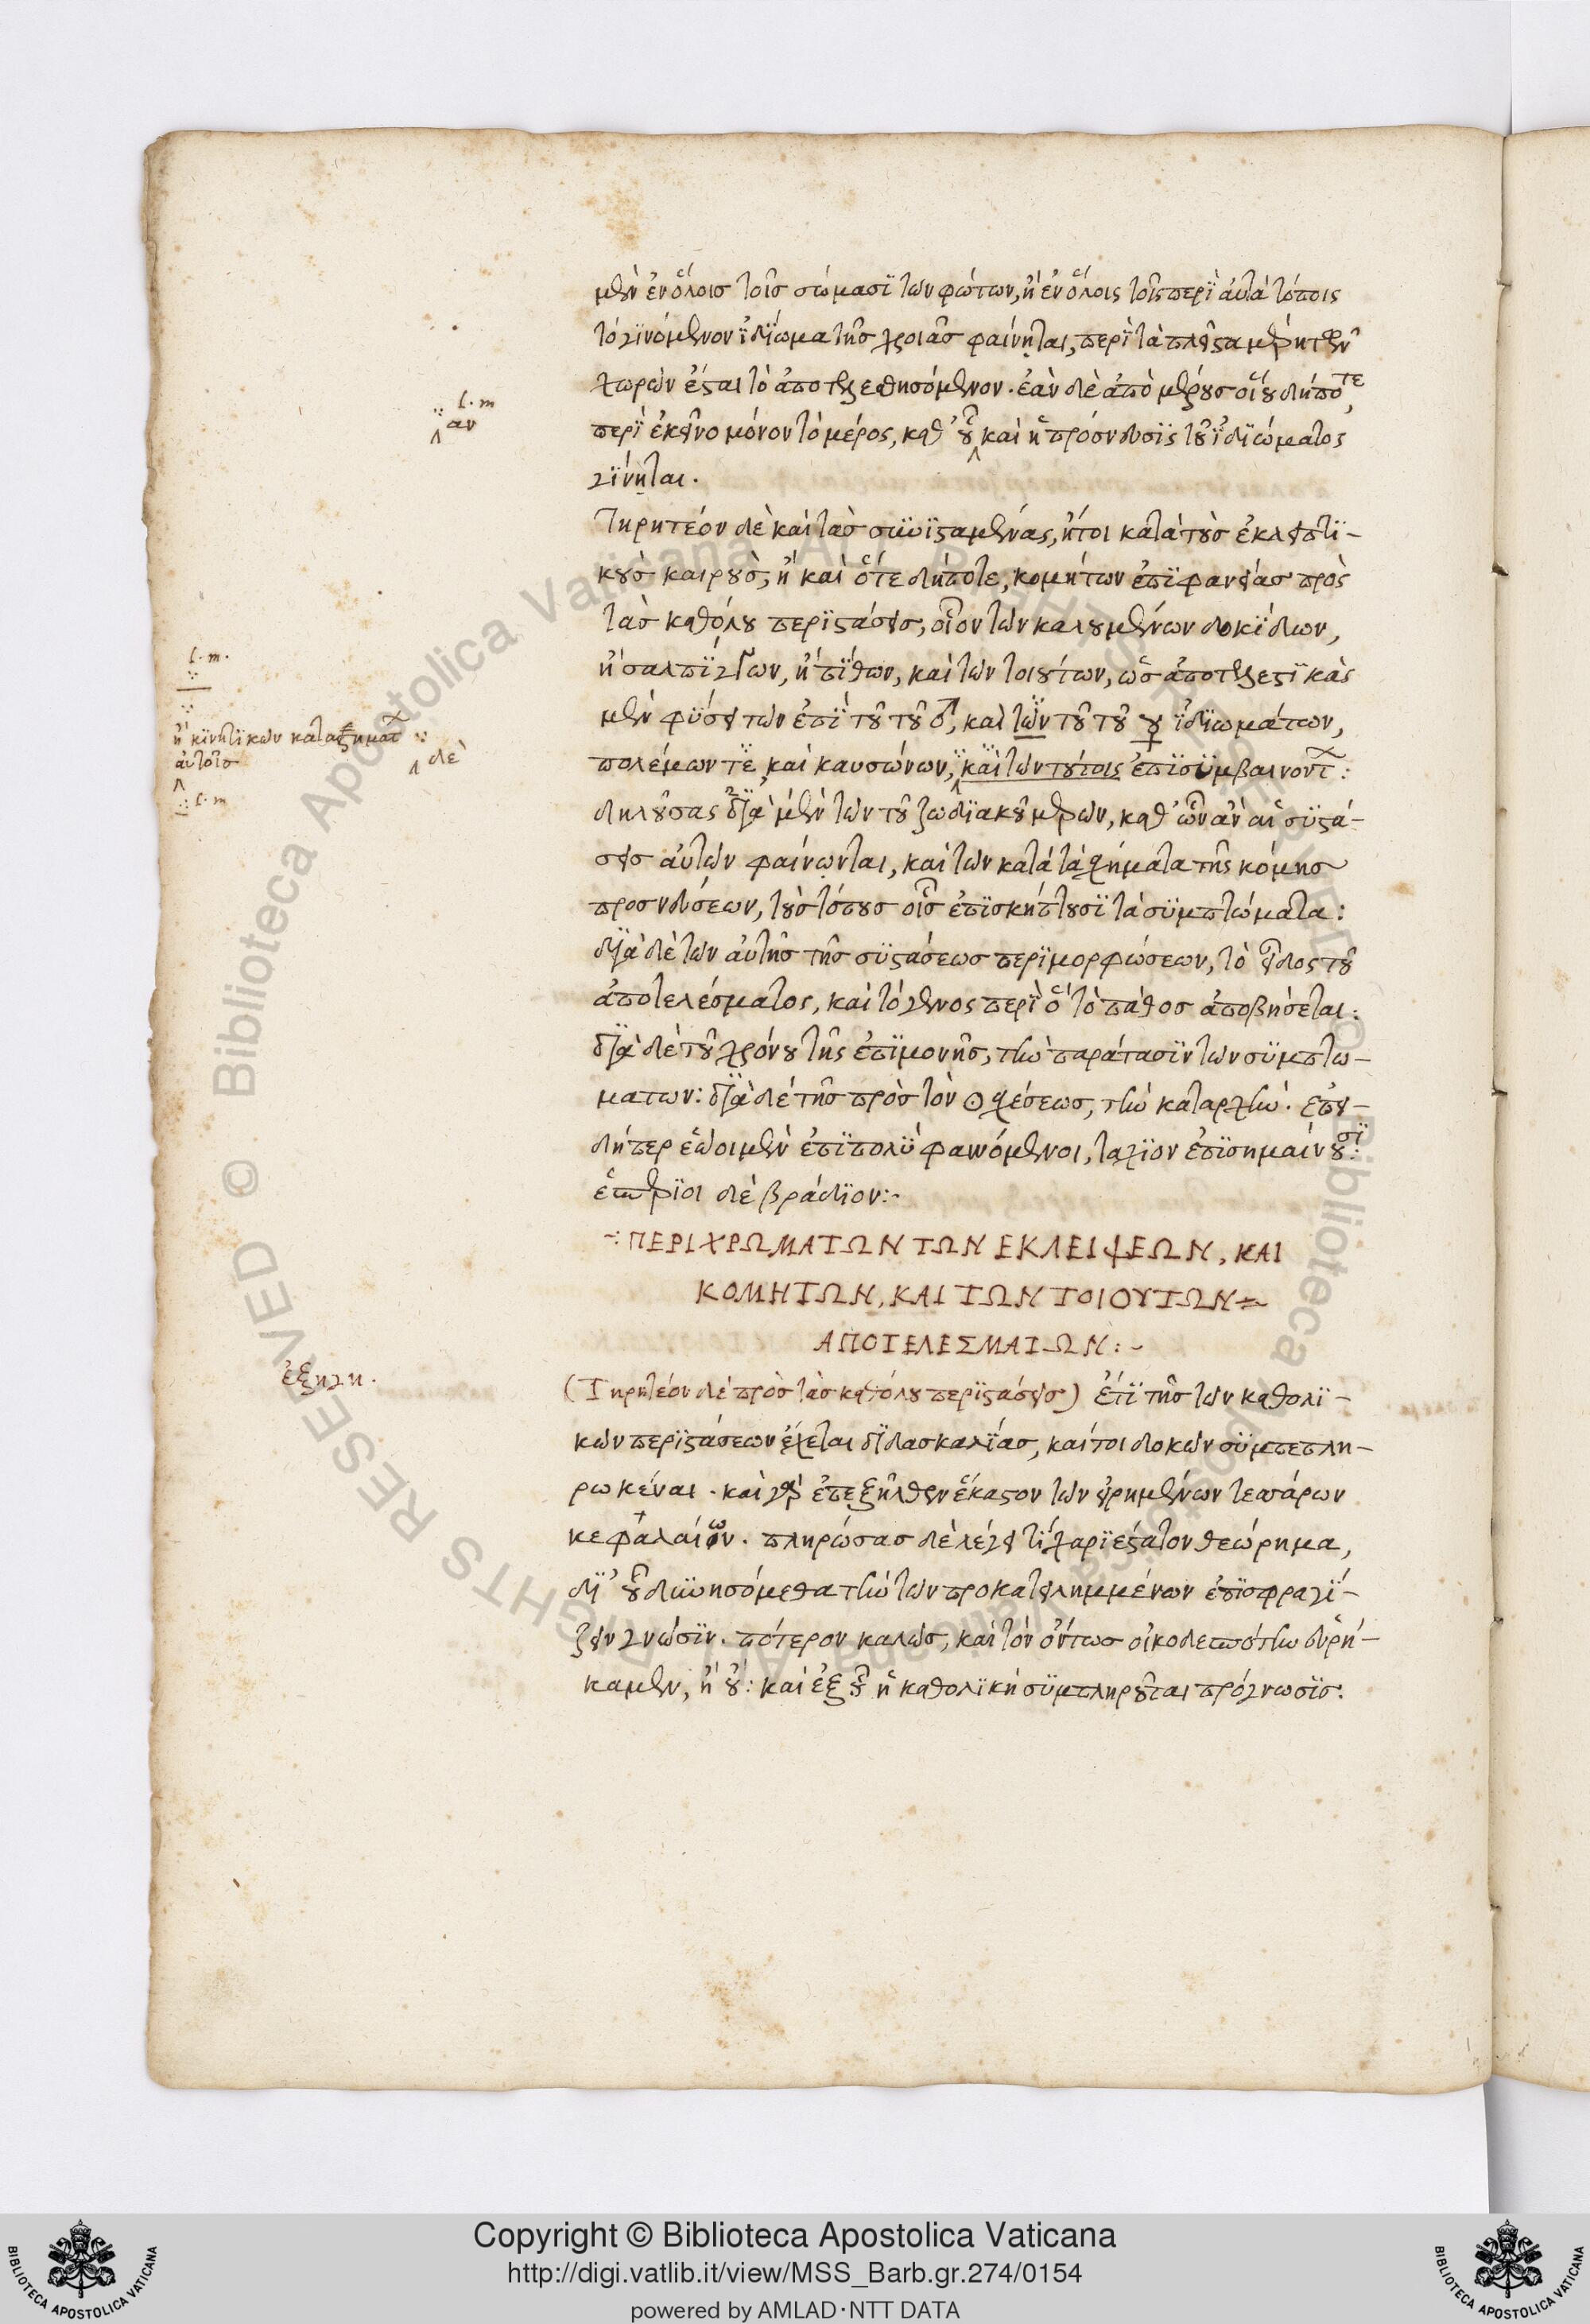 μὲν ἐν ὅλοις τοῖς σώμασϊ των φώτων, ἢ ἐν ὅλοις τοῖς περϊ αὐτὰ τόποις
τὸ γϊνόμενον ϊδϊωμα τῆς χροιᾶς φαίνηται, περϊ τὰ πλεῖστα μέρη τῶν
χωρῶν ἔσται τὸ ἀποτελεσθησόμενον. ἐὰν δὲ ἀπὸ μέρους οἵου δήποτε,
l. m
αν
περϊ ἐκεῖνο μόνον τὸ μέρος, καθ' οὗ καὶ ἡ πρόσνευσϊς τοῦ ϊδϊώματος
γϊνηται.
Τηρητέον δὲ καὶ τὰς συνϊσταμένας, ἤτοι κατὰ τοὺς ἐκλειπτϊ-
κοὺς καιροὺς, ἢ καὶ ὅτε δήποτε, κομήτων ἐπϊφανείας πρὸς
τὰς καθόλου περϊστάσεις, οἷον τῶν καλουμένων δοκϊδων,
l. m.
ἢ σαλπϊγγων, ἢ πϊθων, καὶ τῶν τοιούτων, ὡς ἀποτελεστϊκὰς
μὲν φϋσει τῶν ἐπϊ τοῦ τοῦ ♂, καὶ τῶν τοῦ τοῦ ☿ ϊδϊωμάτων,
ἢ κϊνητϊκῶν καταστημάτ
αὐτοῖς
δὲ
l. m
πολέμων τε, καὶ καυσώνων, καὶ τῶν τούτοις ἐπϊσϋμβαινοντ:
δηλούσας δϊὰ μὲν τῶν τοῦ ζωδϊακοῦ μερῶν, καθ' ὧν ἂν αἱ σϋστά-
σεις αὐτῶν φαίνωνται, καὶ τῶν κατὰ τὰ σχήματα τῆς κόμης
προσνεύσεων, τοὺς τόπους οἷς ἐπϊσκήπτουσϊ τὰ σϋμπτώματα:
δϊὰ δὲ τῶν αὐτῆς τῆς σϋστάσεως περϊμορφώσεων, τὸ εἶδος τοῦ
ἀποτελέσματος, καὶ τὸ γένος περϊ ὃ τὸ πάθος ἀποβήσεται:
δϊὰ δὲ τοῦ χρόνου τῆς ἐπϊμονῆς, τὴν παράτασϊν τῶν σϋμπτω-
μάτων: δϊὰ δὲ τῆς πρὸς τὸν ☉ σχέσεως, τὴν καταρχήν. ἐπει-
δήπερ ἑῷοι μὲν ἐπϊπολϋ φαινόμενοι, ταχϊον ἐπϊσημαίνουσϊ:
ἑσπέρϊοι δὲ βράδϊον:-
-:ΠΕΡΙ ΧΡΩΜΑΤΩΝ ΤΩΝ ΕΚΛΕΙΨΕΩΝ, ΚΑΙ
ΚΟΜΗΤΩΝ, ΚΑΙ ΤΩΝ ΤΟΙΟΥΤΩΝ
ΑΠΟΤΕΛΕΣΜΑΤΩΝ:-
ἐξηγη.
(Τηρητέον δὲ πρὸς τὰς καθόλου περϊστάσεις) ἔτϊ τῆς τῶν καθολϊ-
κῶν περϊστάσεων ἔχεται δϊδασκαλϊας, καίτοι δοκῶν σϋμπεπλη-
ρωκέναι. καὶ γὰρ ἐπεξῆλθεν ἕκαστον τῶν εἰρημένων τεσσάρων
κεφαλαίων. πληρώσας δὲ λέγει τϊ χαρϊέστατον θεώρημα,
δϊ' οὗ δυνησόμεθα τὴν τῶν προκατειλημμένων ἐπϊσφραγϊ-
ζειν γνῶσϊν. πότερον καλῶς, καὶ τὸν ὄντως οἰκοδεσπότην εὑρή-
καμεν, ἢ οὔ: καὶ ἐξ οὗ ἡ καθολϊκὴ σϋμπληροῦται πρόγνωσϊς:
Copyright © Biblioteca Apostolica Vaticana
http://digi.vatlib.it/view/MSS_Barb.gr.274/0154
powered by AMLAD·NTT DATA
BIBLIOTECA APOSTOLICA VATICANA
BIBLIOTECA APOSTOLICA VATICANA